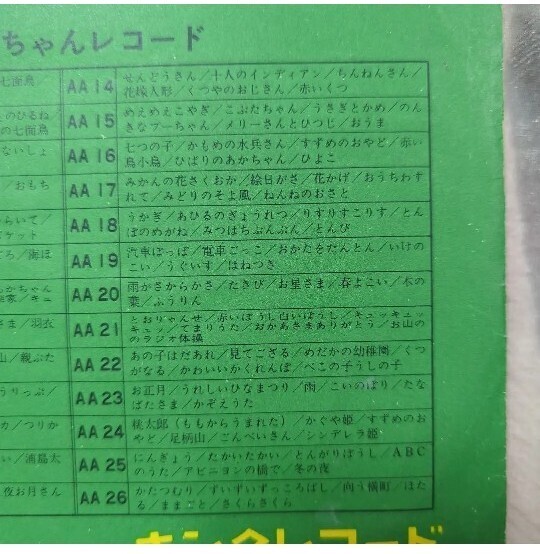 ちゃんレコード
七面鳥/
AA 14
せんどうさん/十人のインディアン/ちんねんさん/
花嫁人形/くつやのおじさん/赤いくつ
のひるね/
の七面鳥
AA 15
めえめえこやぎ/こぶたちゃん/うさぎとかめ/のん
きなプーちゃん/メリーさんとひつじ/おうま
ないしょ
AA 16
七つの子/かもめの水兵さん/すずめのおやど/赤い
鳥小鳥/ひばりのあかちゃん/ひよこ
/おもち
AA 17
みかんの花さくおか/絵日がさ/花かげ/おうちわす
れて/みどりのそよ風/ねんねのおさと
らいて/
ケット
AA 18
うかぎ/あひるのぎょうれつ/りすりすこりす/とん
ぼのめがね/みつばちぶんぶん/とんび
ごろ/海ほ
AA 19
汽車ぽっぽ/電車ごっこ/おかたをたんとん/いけの
こい/うぐいす/はねつき
かちゃん
AA 20
雨がさからかさ/たきび/お星さま/春よこい/木の
葉/ふうりん
さま/羽衣
AA 21
とおりゃんせ/赤いぼうし白いぼうし/キュッキュッ
キュッ/てまりうた/おかあさまありがとう/お山の
のラジオ体操
山/親ぶた
AA 22
あの子はだあれ/見てござる/めだかの幼稚園/くつ
がなる/かわいいかくれんぼ/べこの子うしの子
うりっぷ/
AA 23
お正月/うれしいひなまつり/雨/こいのぼり/たな
ばたさま/かぞえうた
カ/つりか
AA 24
桃太郎(ももからうまれた)/かぐや姫/すずめのお
やど/足柄山/ごんべいさん/シンデレラ姫
い/浦島太
AA 25
にんぎょう/たかいたかい/とんがりぼうし/ABC
のうた/アビニヨンの橋で/冬の夜
夜お月さん
AA 26
かたつむり/ずいずいずっころばし/向う横町/ほた
る/ままごと/さくらさくら
キングレコード